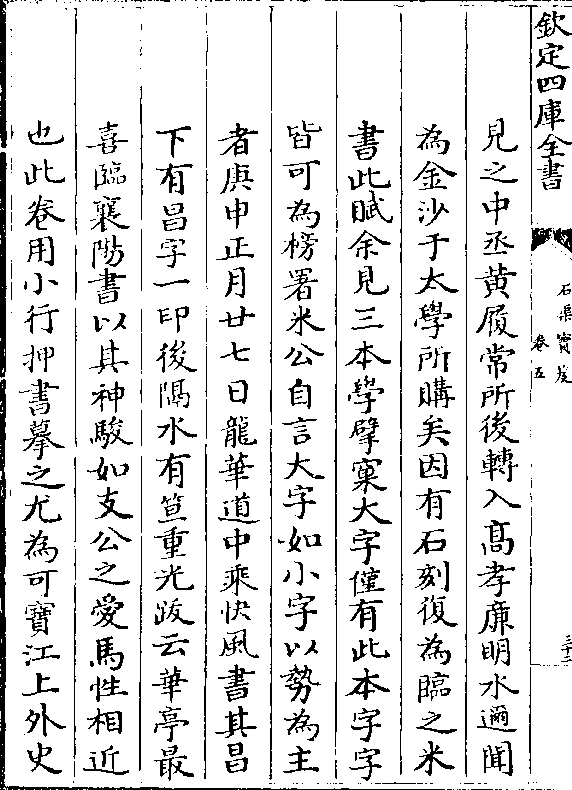 欽定四庫全書
石渠寶笈
卷五
三十二
見之中丞黄履常所後轉入髙孝亷明水邇聞
為金沙于太學所購矣因有石刻復為臨之米
書此賦余見三本學擘窠大字僅有此本字字
皆可為榜署米公自言大字如小字以勢為主
者庚申正月廿七日龍華道中乘快風書其昌
下有昌字一印後隔水有笪重光跋云華亭最
喜臨襄陽書以其神駿如支公之愛馬性相近
也此卷用小行押書摹之尤為可寶江上外史